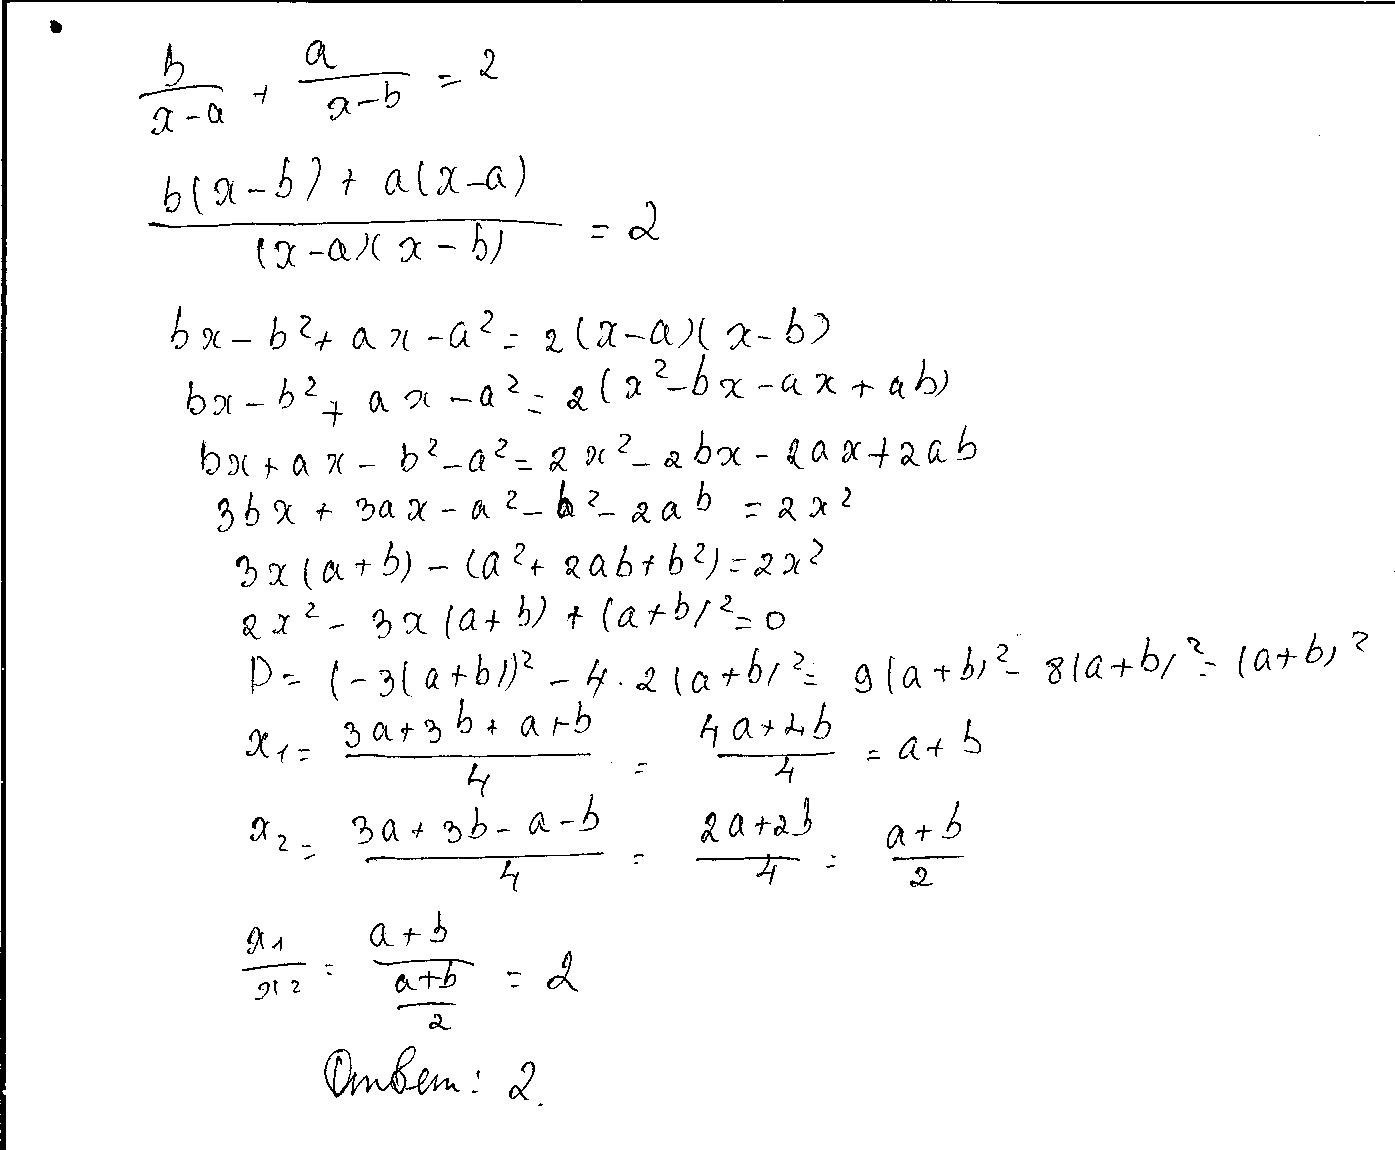 b/(x-a) + a/(x-b) = 2
(b(x-b) + a(x-a))/((x-a)(x-b)) = 2
bx - b² + ax - a² = 2(x-a)(x-b)
bx - b² + ax - a² = 2(x² - bx - ax + ab)
bx + ax - b² - a² = 2x² - 2bx - 2ax + 2ab
3bx + 3ax - a² - b² - 2ab = 2x²
3x(a+b) - (a² + 2ab + b²) = 2x²
2x² - 3x(a+b) + (a+b)² = 0
D = (-3(a+b))² - 4·2(a+b)² = 9(a+b)² - 8(a+b)² = (a+b)²
x₁ = (3a+3b+a+b)/4 = (4a+4b)/4 = a+b
x₂ = (3a+3b-a-b)/4 = (2a+2b)/4 = (a+b)/2
x₁/x₂ = (a+b)/((a+b)/2) = 2
Ответ: 2.